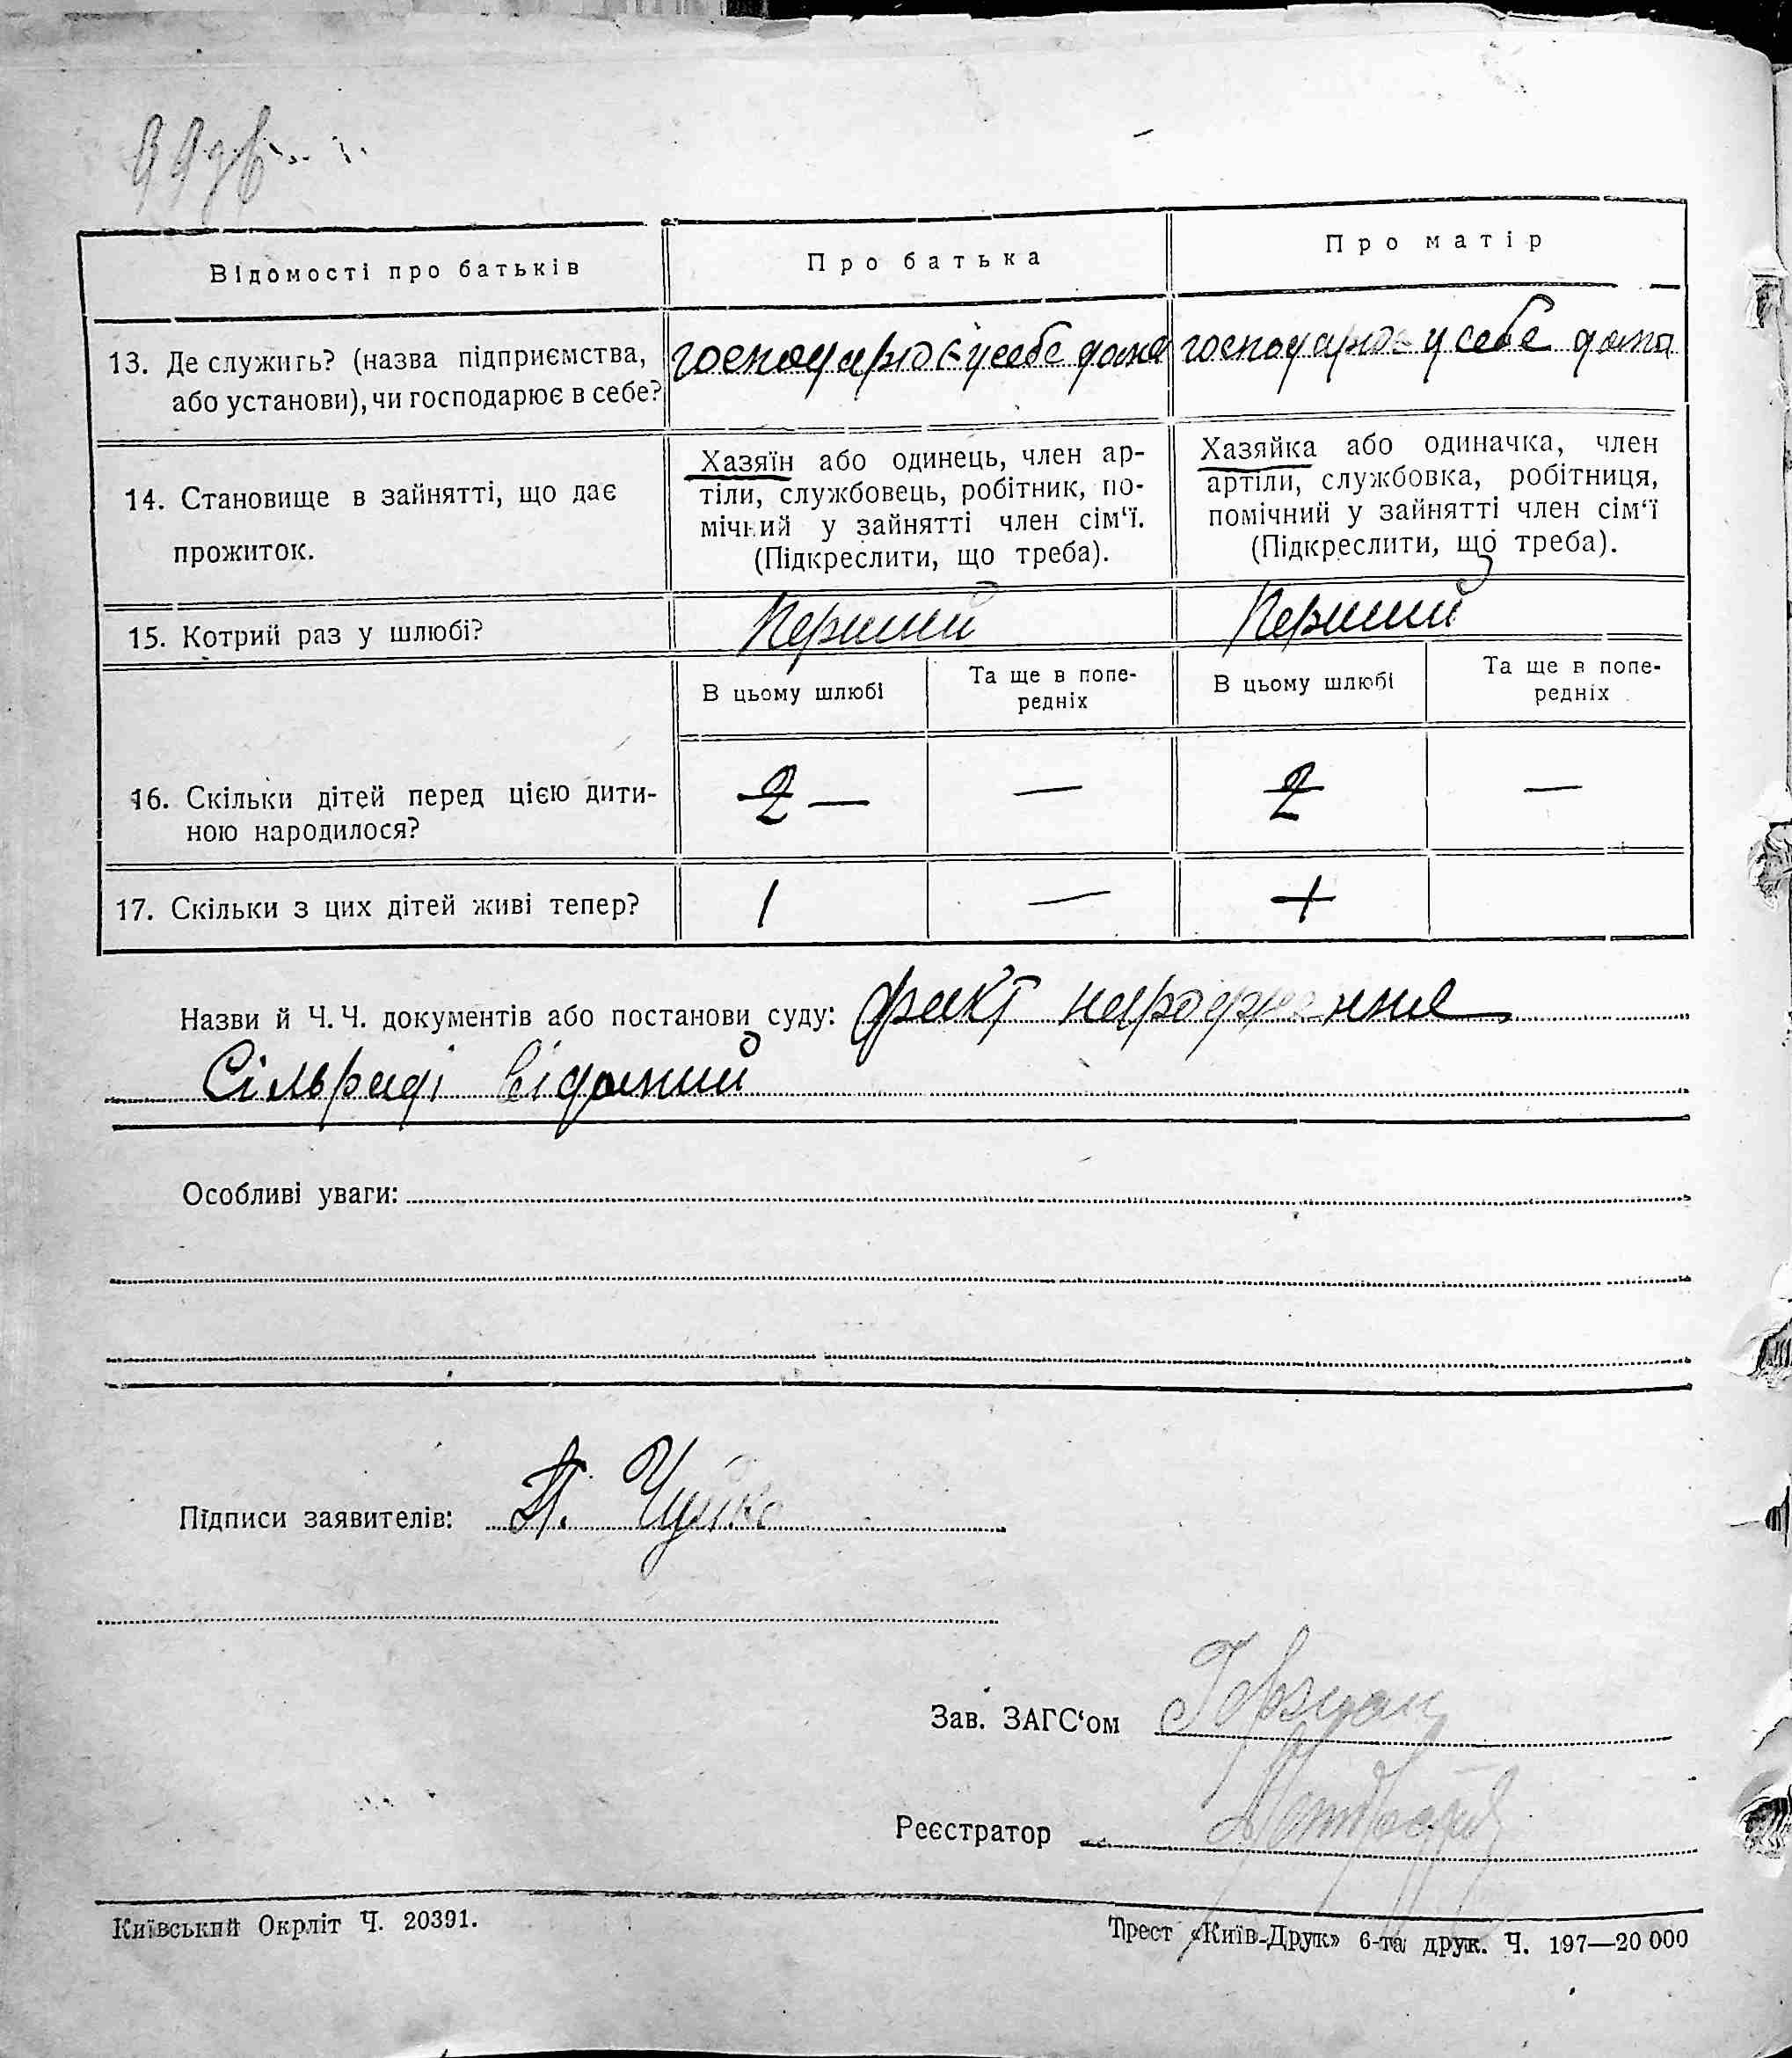 Відомості про батьків
Про батька
Про матір
13. Де служить? (назва підприємства,
або установи), чи господарює в себе?
господарює у себе дома
господарює у себе дома
14. Становище в зайнятті, що дає
прожиток.
Хазяїн або одинець, член ар-
тіли, службовець, робітник, по-
мічний у зайнятті член сім‘ї.
(Підкреслити, що треба).
Хазяйка або одиначка, член
артіли, службовка, робітниця,
помічний у зайнятті член сім‘ї
(Підкреслити, що треба).
15. Котрий раз у шлюбі?
Перший
Перший
В цьому шлюбі
Та ще в попе-
редніх
В цьому шлюбі
Та ще в попе-
редніх
16. Скільки дітей перед цією дити-
ною народилося?
2 —
—
2
—
17. Скільки з цих дітей живі тепер?
1
—
1
Назви й Ч. Ч. документів або постанови суду: факт народження
Сільраді відомий
Особливі уваги:
Підписи заявителів: П. Чуйко
Зав. ЗАГС‘ом
Реєстратор
Київський Окрліт Ч. 20391.
Трест «Київ-Друк» 6-та друк. Ч. 197—20 000